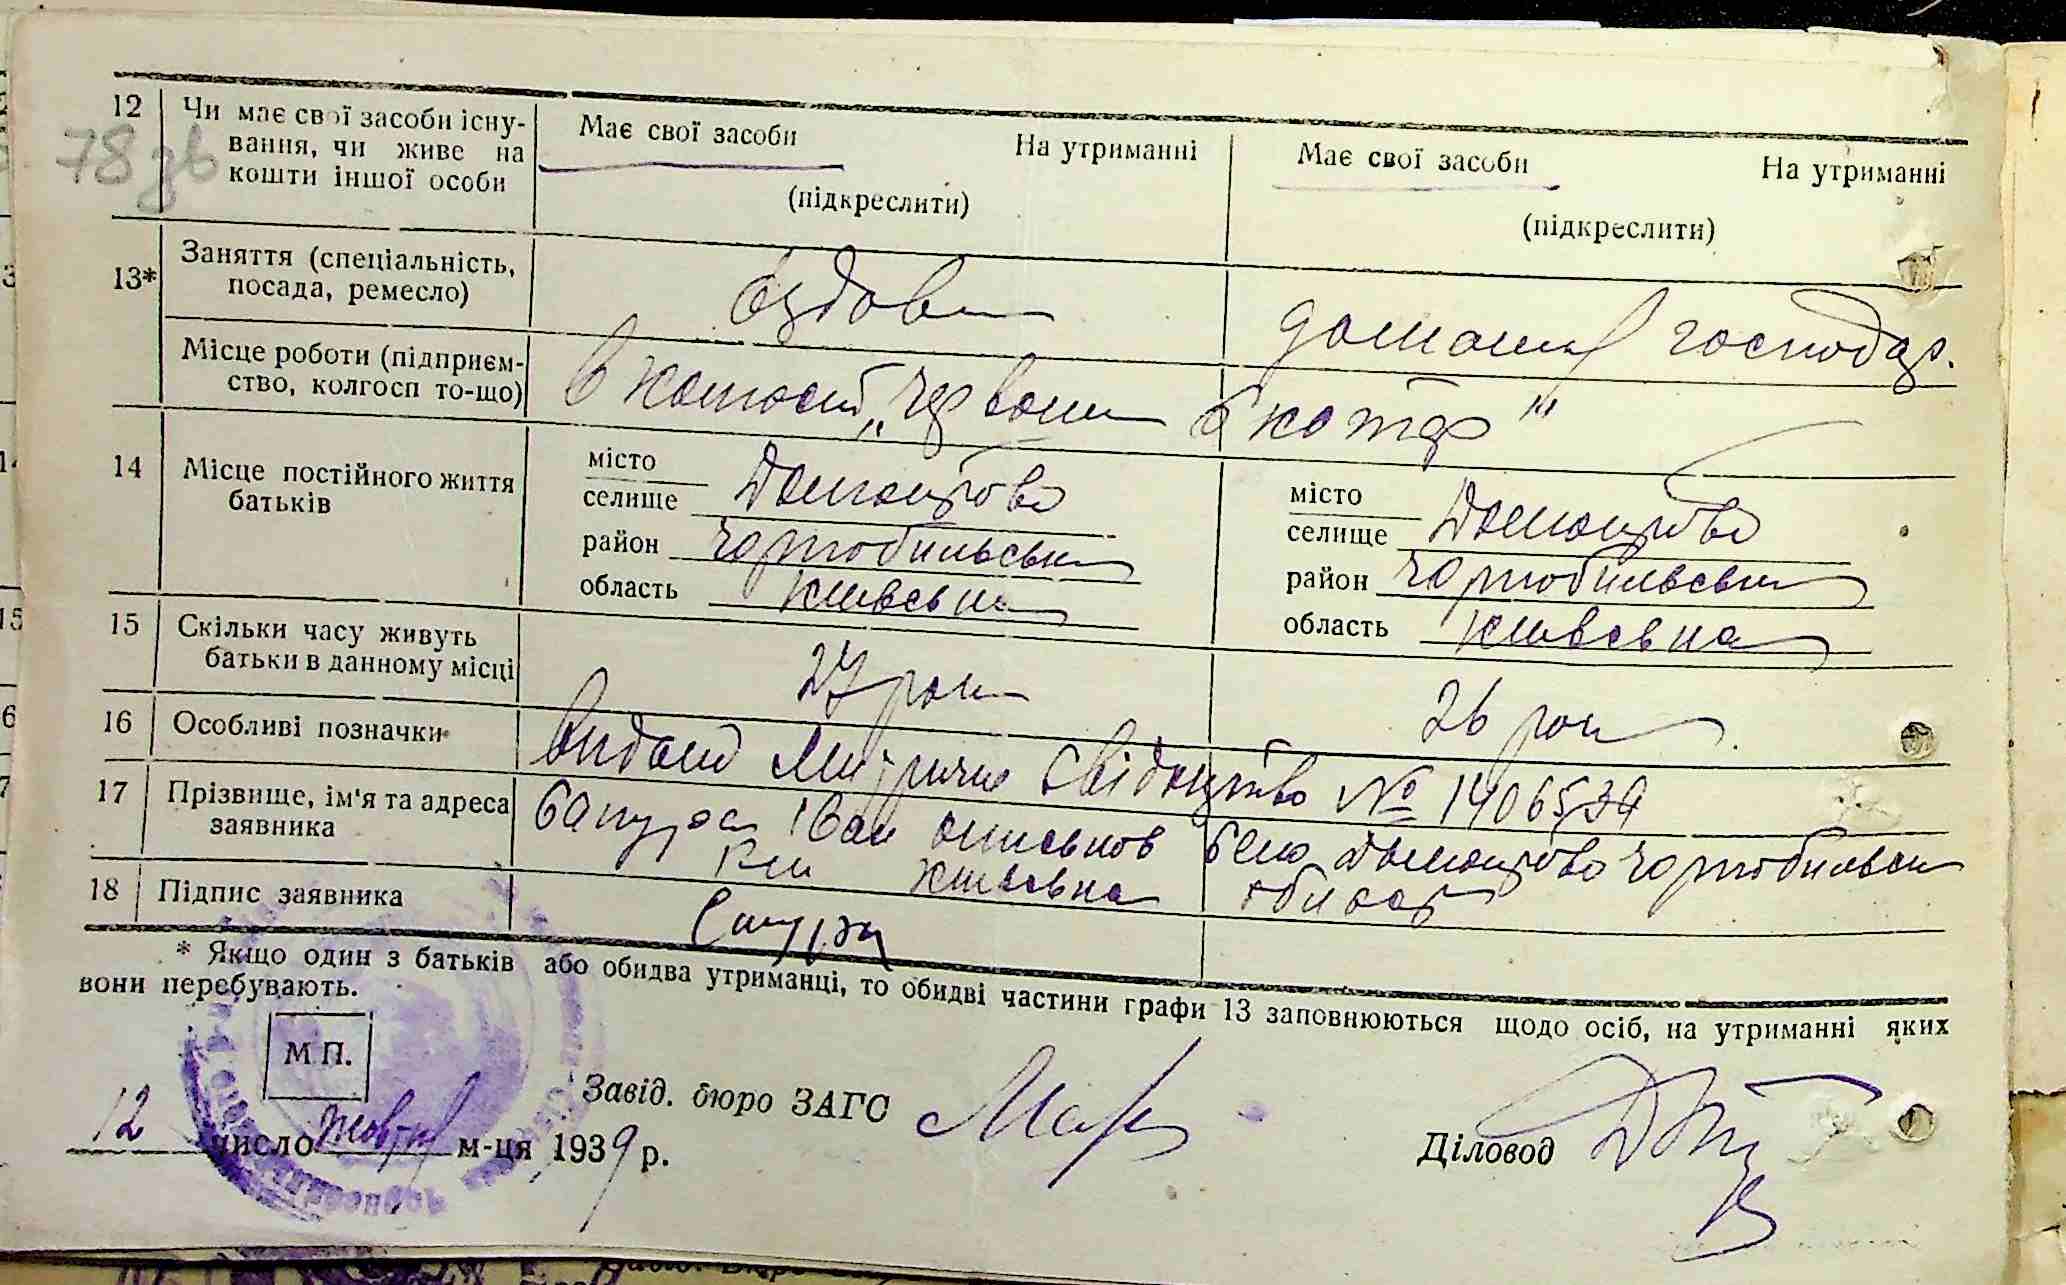 12 Чи має свої засоби існу-
вання, чи живе на
кошти іншої особи
Має свої засоби На утриманні
(підкреслити)
Має свої засоби На утриманні
(підкреслити)
78 зв
13* Заняття (спеціальність,
посада, ремесло)
Їздови
домашнє господар.
Місце роботи (підприєм-
ство, колгосп то-що)
в колгоспі „Червони
14 Місце постійного життя
батьків
місто
селище
район Чорнобильськи
область Київська
місто
селище
район Чорнобильськи
область Київська
15 Скільки часу живуть
батьки в данному місці
27 роки
26 роки
16 Особливі позначки
Видано Метричне свідоцтво № 1406539
17 Прізвище, ім'я та адреса
заявника
Іван
Київська область
18 Підпис заявника
* Якщо один з батьків або обидва утриманці, то обидві частини графи 13 заповнюються щодо осіб, на утриманні яких
вони перебувають.
М П.
Завід. бюро ЗАГС
Діловод
12 число жовтня м-ця 1939 р.